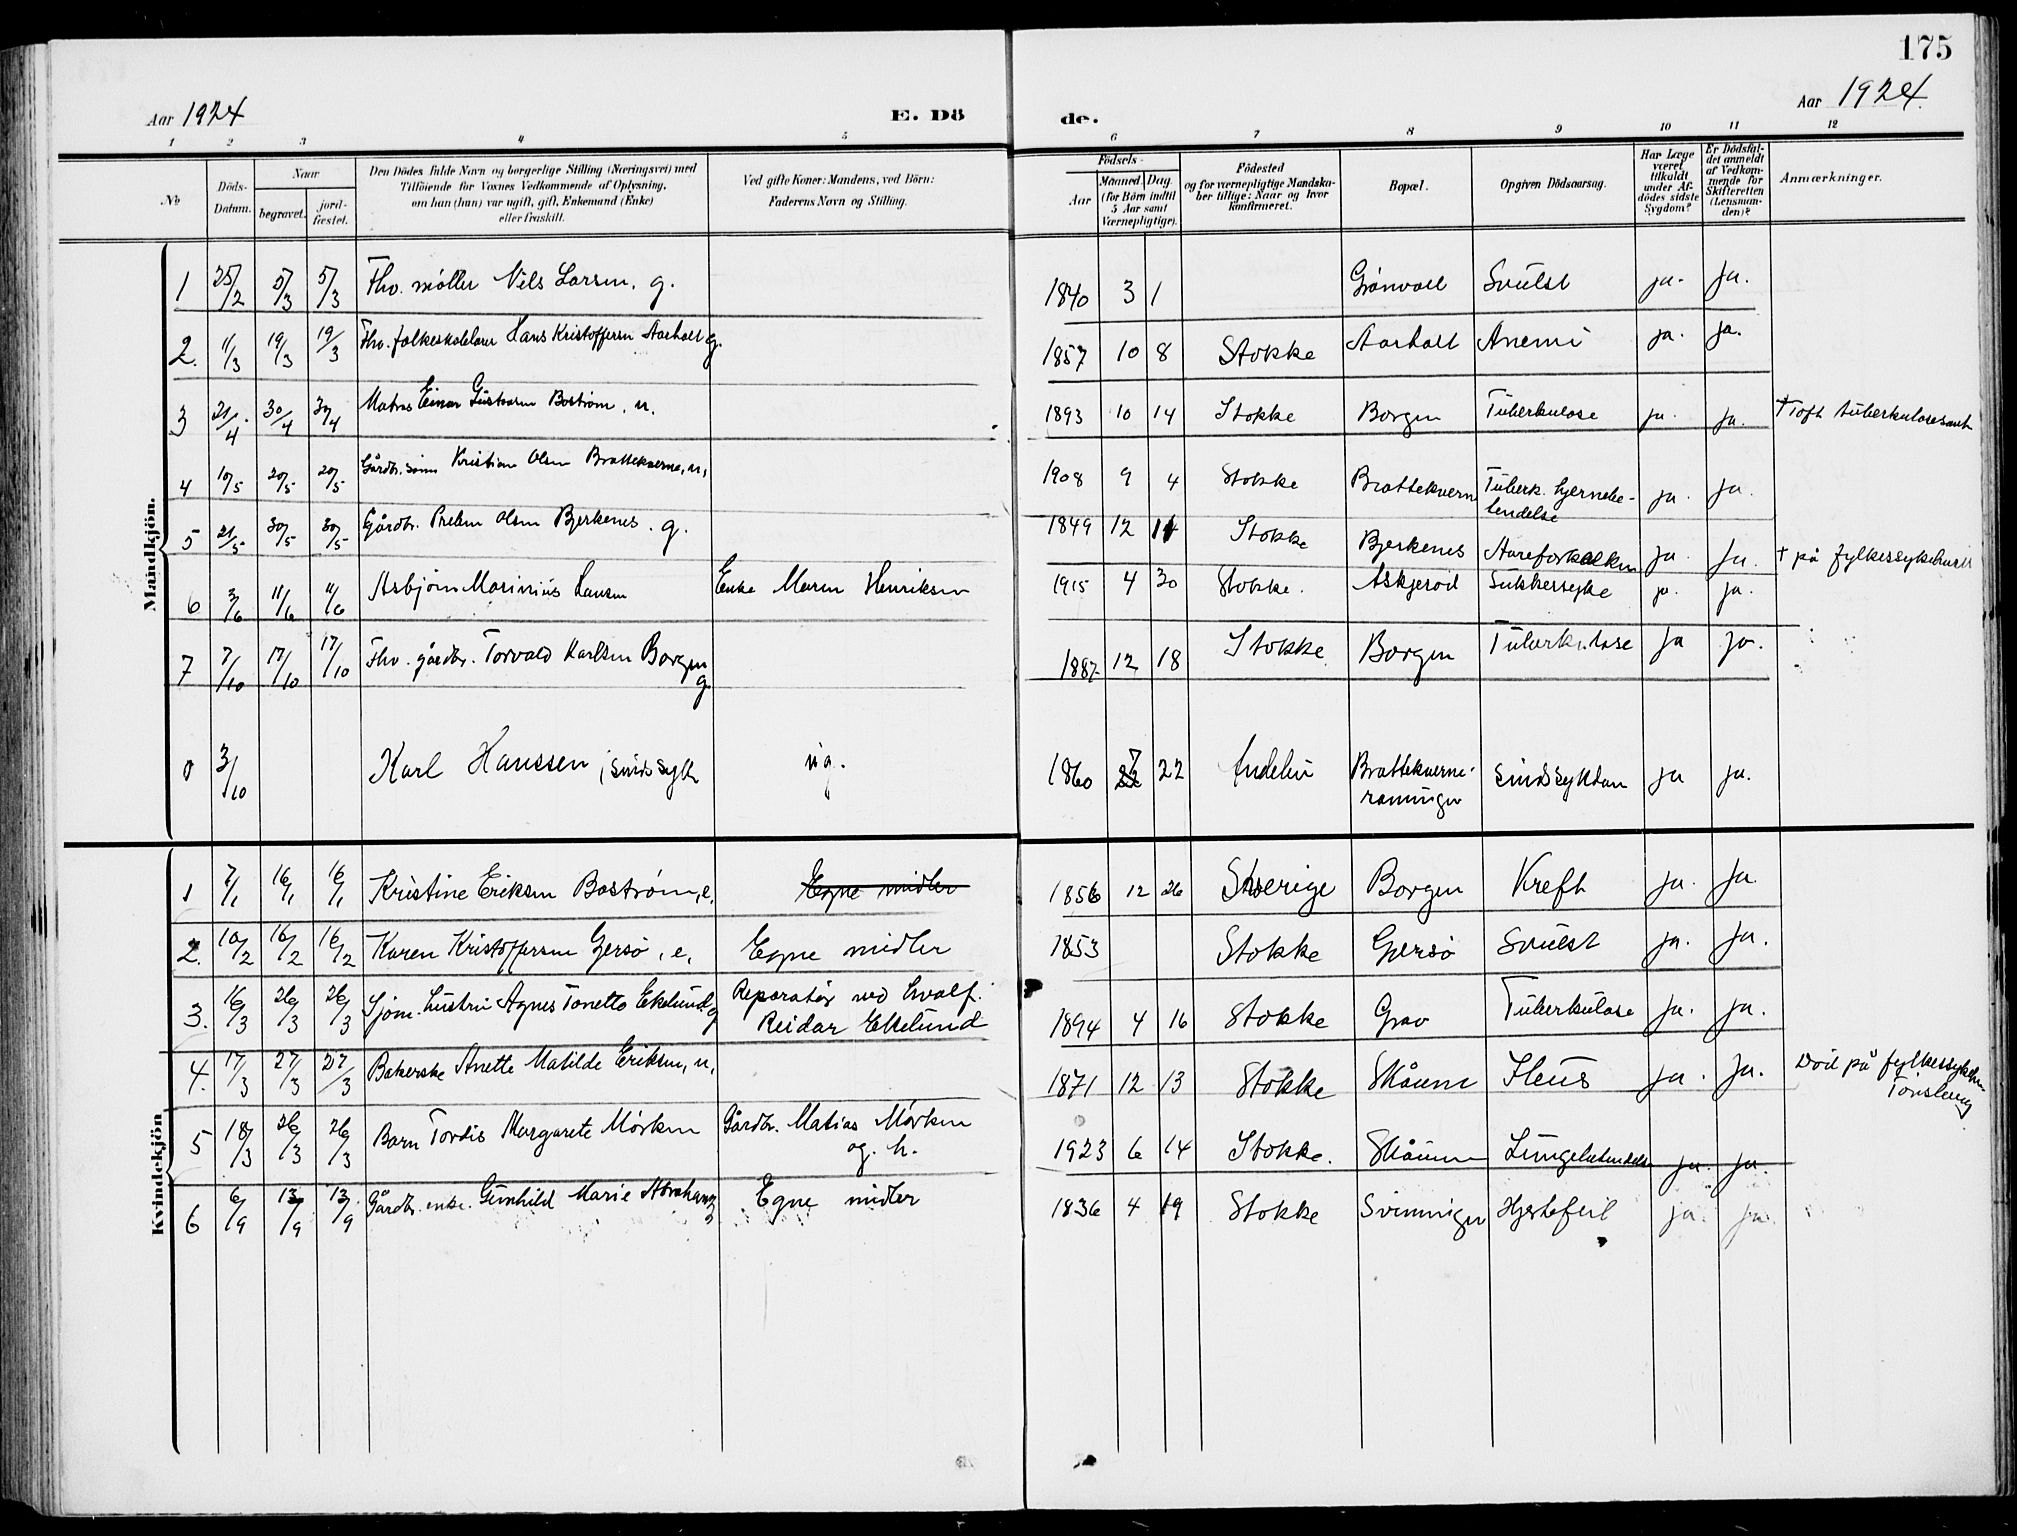 175
Aar 1924
E. Dö
de.
Aar 1924.
1 2 3 4 5 6 7 8 9 10 11 12
No
Döds-Datum.
Naar
begravet.
jord-fæstet.
Den Dödes fulde Navn og borgerlige Stilling (Næringsvei) med
Tilföiende for Voxnes Vedkommende af Oplysning,
om han (hun) var ugift, gift, Enkemand (Enke)
eller fraskilt.
Ved gifte Koner: Mandens, ved Börn:
Faderens Navn og Stilling.
Födsels-
Aar
Maaned. Dag.
(for Börn indtil
5 Aar samt
Værnepligtige).
Födested
og for værnepligtige Mandska-
ber tillige: Naar og hvor
konfirmeret.
Bopæl.
Opgiven Dödsaarsag.
Har Læge
været
tilkaldt
under Af-
dödes sidste
Sygdom?
Er Dödsfal-
det anmeldt
af Vedkom-
mende for
Skifteretten
(Lensman-
den)?
Anmærkninger.
Mandkjön.
1 25/2 5/3 5/3 Fhv. møller Nils Larsen. g. 1840 3 1 Grønvoll Svulst ja. ja.
2. 11/3 19/3 19/3 Fhv. folkeskolelærer Hans Kristoffersen Aarholt g. 1857 10 8 Stokke Aarholt Anemi ja. ja.
3 21/4 30/4 30/4 Matros Einar Gustavsen Bostrøm, u. 1893 10 14 Stokke Borgen Tuberkulose ja. ja. † Toft tuberkulosesant
4 10/5 20/5 20/5 Gårdbr.sønn Kristian Olsen Brattekverne, u, 1908 9 4 Stokke Brattekvern Tuberk. hjernebe-
tendelse ja. ja.
5 21/5 30/5 30/5 Gårdbr. Preben Olsen Bjerkenes. g. 1849 12 11 Stokke Bjerkenes Aareforkalkn ja. ja. † på fylkessykehuset
6 3/6 11/6 11/6 Asbjørn Marinius Larsen Enke Maren Henriksen 1915 4 30 Stokke. Askjerød Sukkersyke ja. ja.
7 7/10 17/10 17/10 Fhv. gårdbr. Torvald Karlsen Borgen g. 1887 12 18 Stokke Borgen Tuberkulose ja ja.
3/10 Karl Hanssen, sindssyk ug. 1860 7 22 Andebu Brattekverne-
rønningen sindssykdom ja ja.
Kvindekjön
1 7/1 16/1 16/1 Kristine Eriksen Bostrøm, e. Egne midler 1856 12 26 Sverige Borgen Kreft ja. ja
2. 10/2 16/2 16/2 Karen Kristoffersen Gjersø, e, Egne midler 1853 Stokke Gjersø Svulst ja. ja.
3. 16/3 26/3 26/3 Sjøm. hustru Agnes Tonette Ekelund g Reparatør ved hvalf.
Reidar Ekelund 1894 4 16 Stokke Grav Tuberkulose ja. ja.
4. 17/3 27/3 27/3 Bakerske Anette Matilde Eriksen, u, 1871 12 13 Stokke Skåum Ileus ja. ja. Død på fylkessykehu-
Tønsberg
5 18/3 26/3 26/3 Barn Tordis Margarete Mørken Gårdbr. Matias Mørken
og h. 1923 6 14 Stokke. Skåum Lungebetendelse ja. ja.
6 6/9 13/9 13/9 Gårdbr. enke. Gunhild Marie Abrahams Egne midler 1836 4 19 Stokke Svinningen Hjertefeil ja. ja.